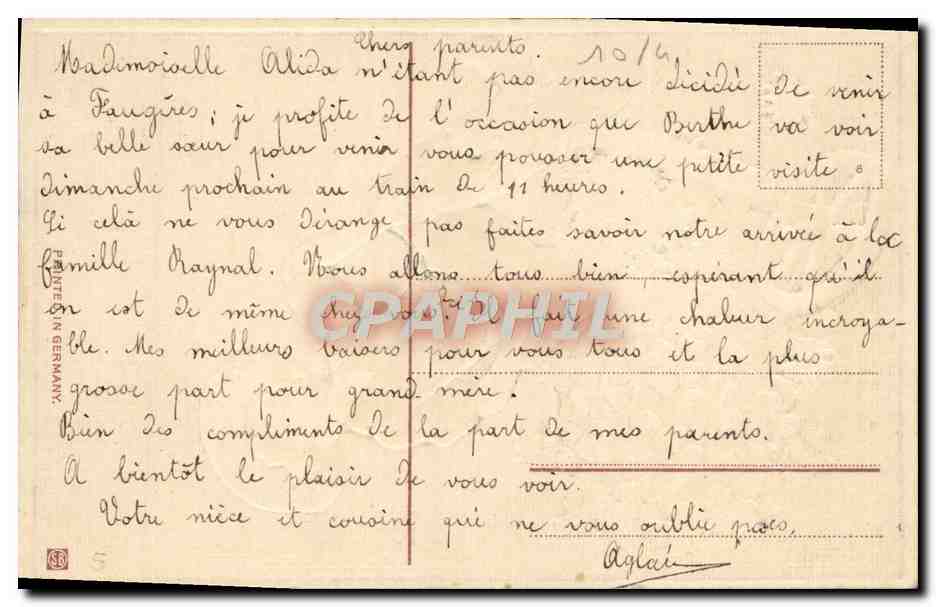 Chers parents.
10/4
Mademoiselle Alida n'étant pas encore décidée de venir
à Faugères; je profite de l'occasion que Berthe va voir
sa belle sœur pour venir vous pousser une petite visite.
dimanche prochain au train de 11 heures.
Si celà ne vous dérange pas faites savoir notre arrivée à la
famille Raynal. Nous allons tous bien, espérant qu'il
en est de même chez vous. Ici il fait une chaleur incroya-
ble. Mes meilleurs baisers pour vous tous et la plus
grosse part pour grand-mère!
Bien des compliments de la part de mes parents.
A bientôt le plaisir de vous voir.
Votre nièce et cousine qui ne vous oublie pas.
Aglaé
PRINTED IN GERMANY.
CPAPHIL
SB
5